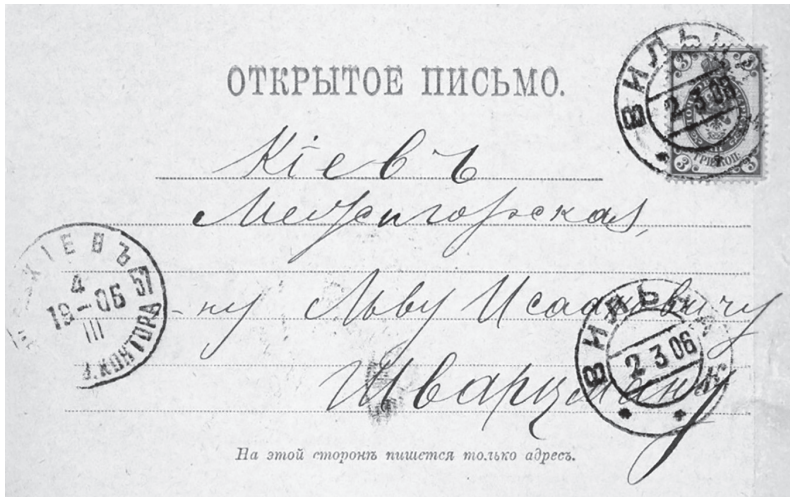 ОТКРЫТОЕ ПИСЬМО.
ВИЛЬНА
2 3 06
3
3
3
3
Кіевъ
Межигорская,
КІЕВЪ
57
4
19-06
III
КОНТОРА
-ну Льву Исааковичу
ВИЛЬНА
2 3 06
Шварцману
На этой сторонѣ пишется только адресъ.